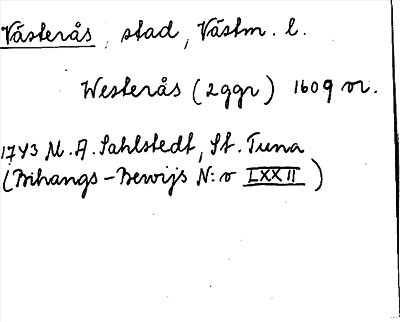 Västerås, stad, Västm. l.
Westerås (2ggr) 1609 or.
1743 M. A. Sahlstedt, St. Tuna
(Bihangs-Bewijs N:o LXXII)